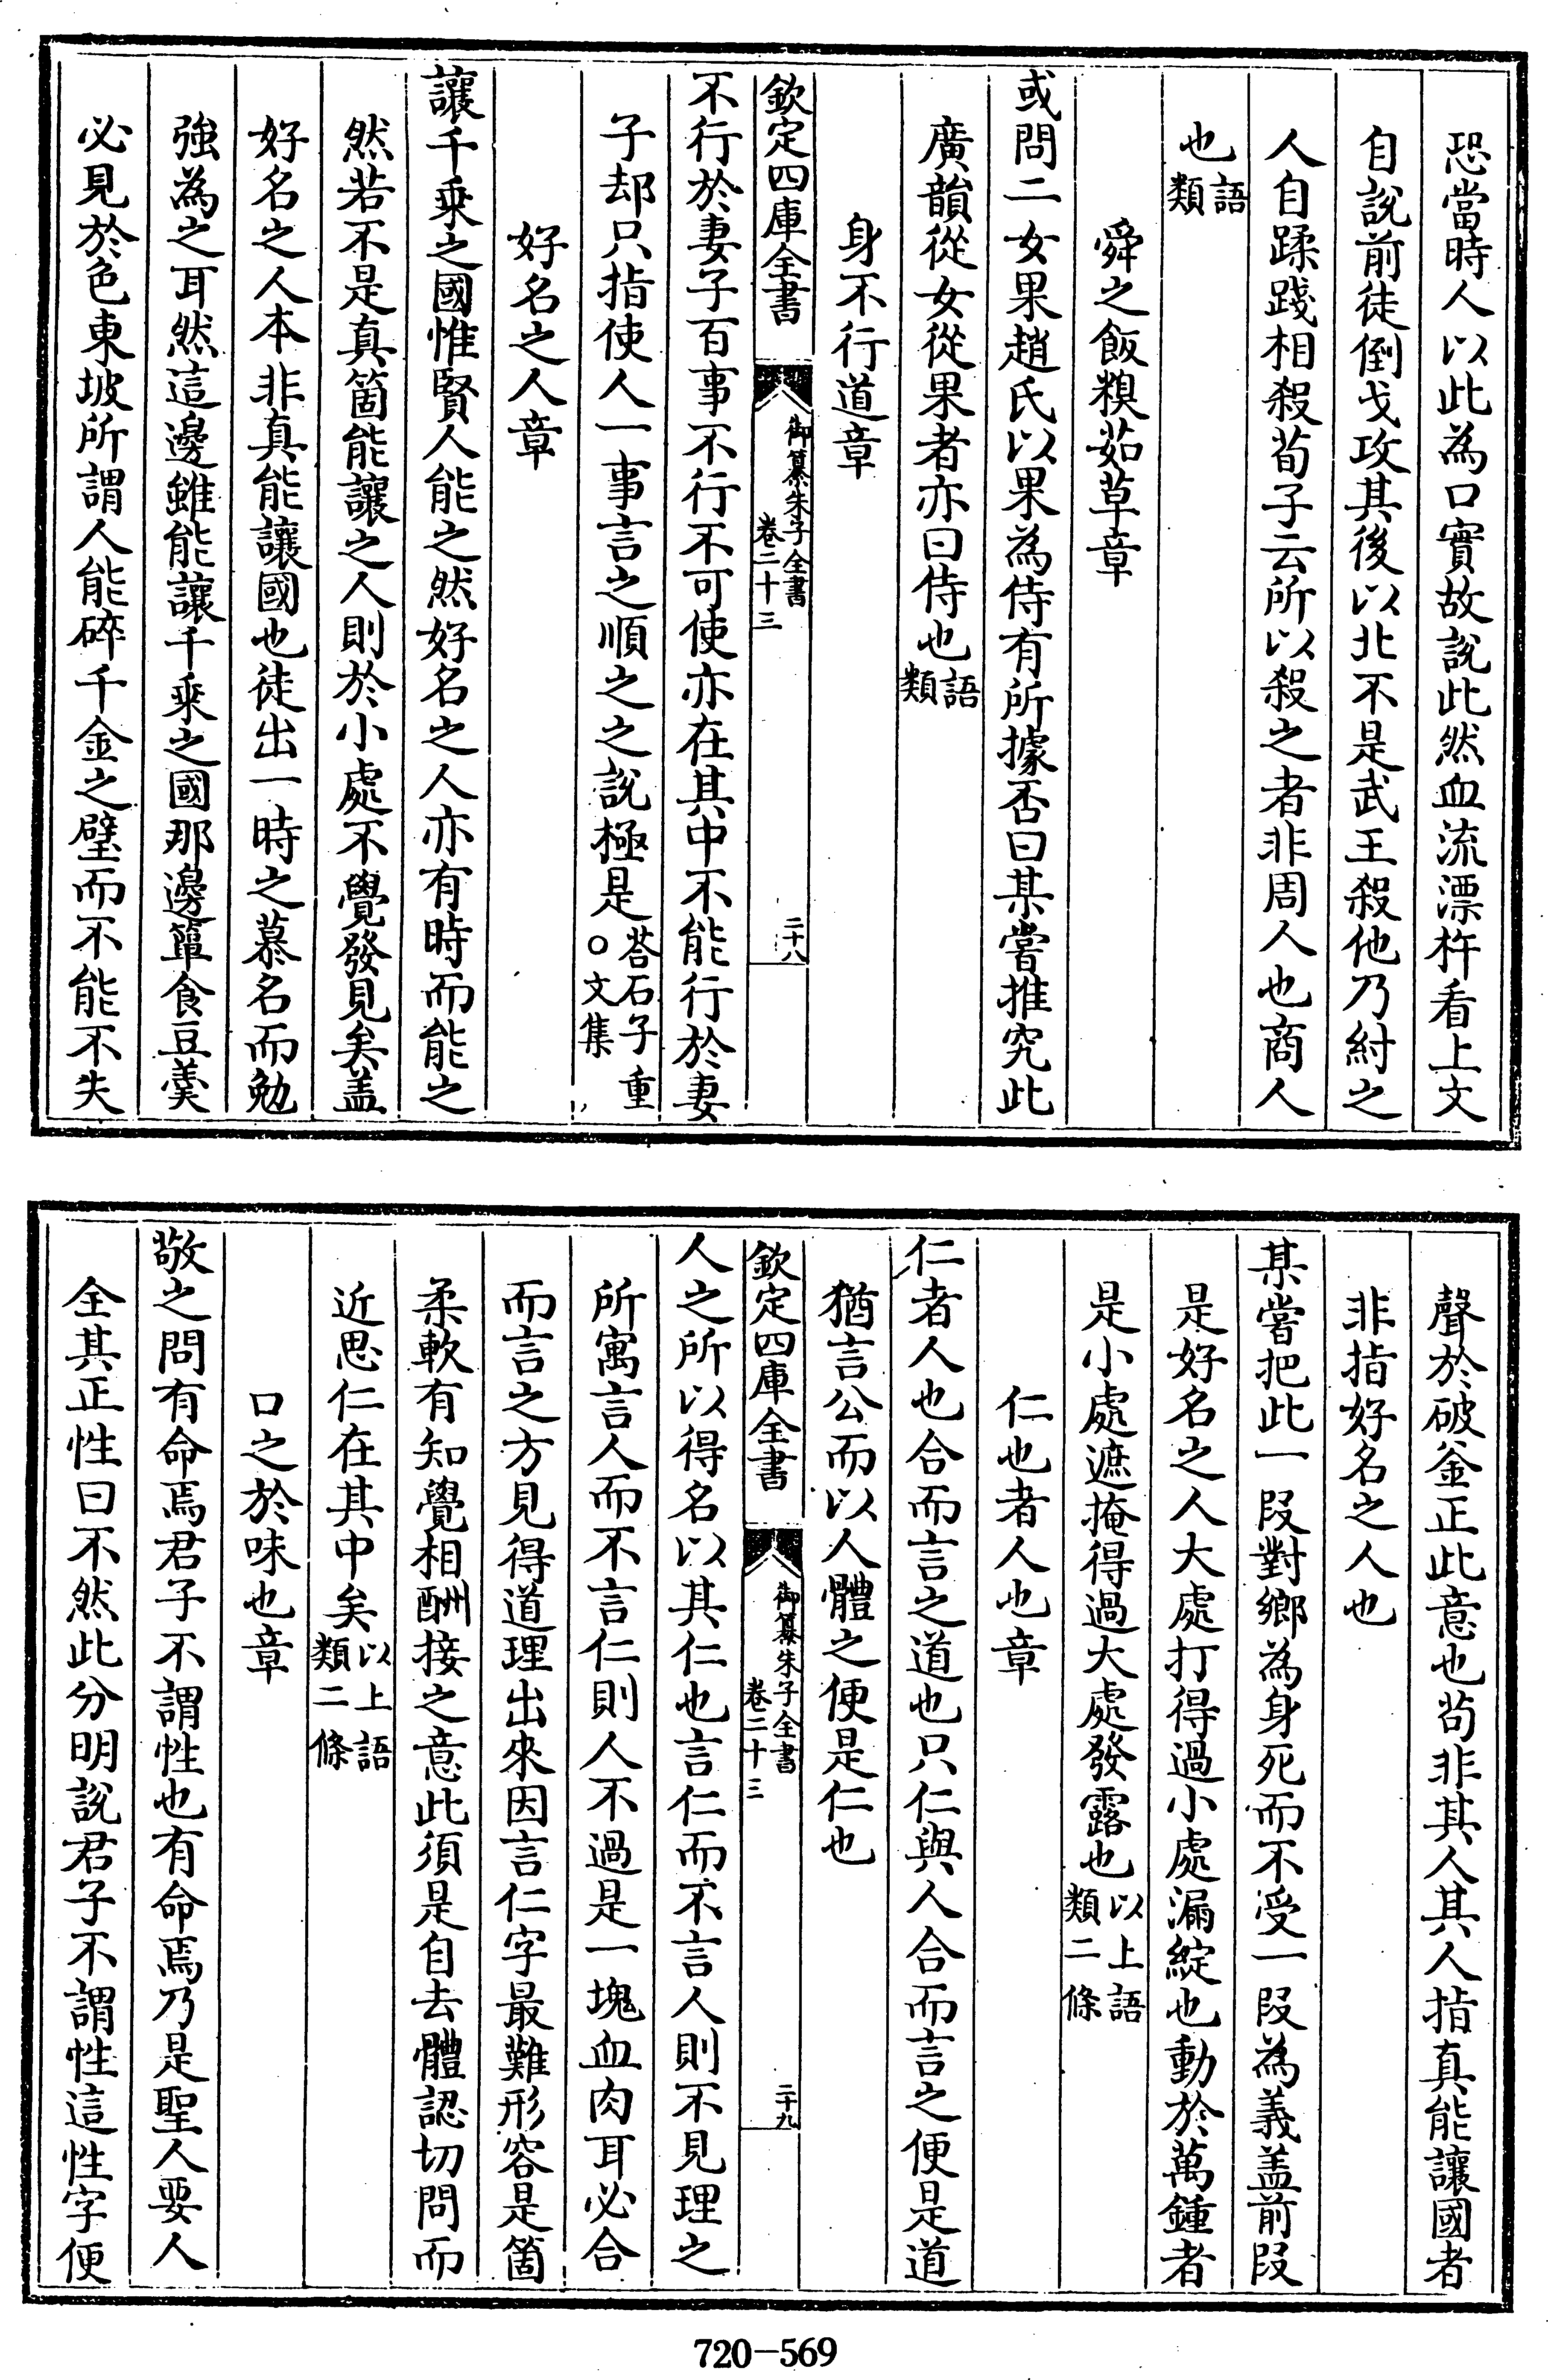 恐當時人以此為口實故說此然血流漂杵看上文
自說前徒倒戈攻其後以北不是武王殺他乃紂之
人自蹂踐相殺荀子云所以殺之者非周人也商人
也語類
舜之飯糗茹草章
或問二女果趙氏以果為侍有所據否曰某嘗推究此
廣韻從女從果者亦曰侍也語類
身不行道章
欽定四庫全書 御纂朱子全書 卷二十三 二十八
不行於妻子百事不行不可使亦在其中不能行於妻
子却只指使人一事言之順之之說極是荅石子重○文集
好名之人章
讓千乘之國惟賢人能之然好名之人亦有時而能之
然若不是真箇能讓之人則於小處不覺發見矣盖
好名之人本非真能讓國也徒出一時之慕名而勉
強為之耳然這邊雖能讓千乘之國那邊簞食豆羹
必見於色東坡所謂人能碎千金之璧而不能不失
聲於破釜正此意也苟非其人其人指真能讓國者
非指好名之人也
某嘗把此一段對鄉為身死而不受一段為義盖前段
是好名之人大處打得過小處漏綻也動於萬鍾者
是小處遮掩得過大處發露也以上語類二條
仁也者人也章
仁者人也合而言之道也只仁與人合而言之便是道
猶言公而以人體之便是仁也
欽定四庫全書 御纂朱子全書 卷二十三 二十九
人之所以得名以其仁也言仁而不言人則不見理之
所寓言人而不言仁則人不過是一塊血肉耳必合
而言之方見得道理出來因言仁字最難形容是箇
柔軟有知覺相酬接之意此須是自去體認切問而
近思仁在其中矣以上語類二條
口之於味也章
敬之問有命焉君子不謂性也有命焉乃是聖人要人
全其正性曰不然此分明說君子不謂性這性字便
720-569